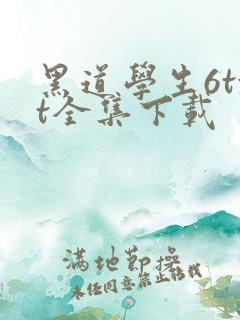 黑道學生6tx
t全集下載
滿地節操
未经同意禁止转载